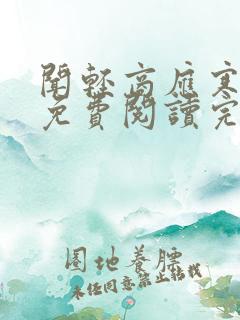 聞輕高應寒
免費閱讀完
圈地養膘
未經同意禁止轉載